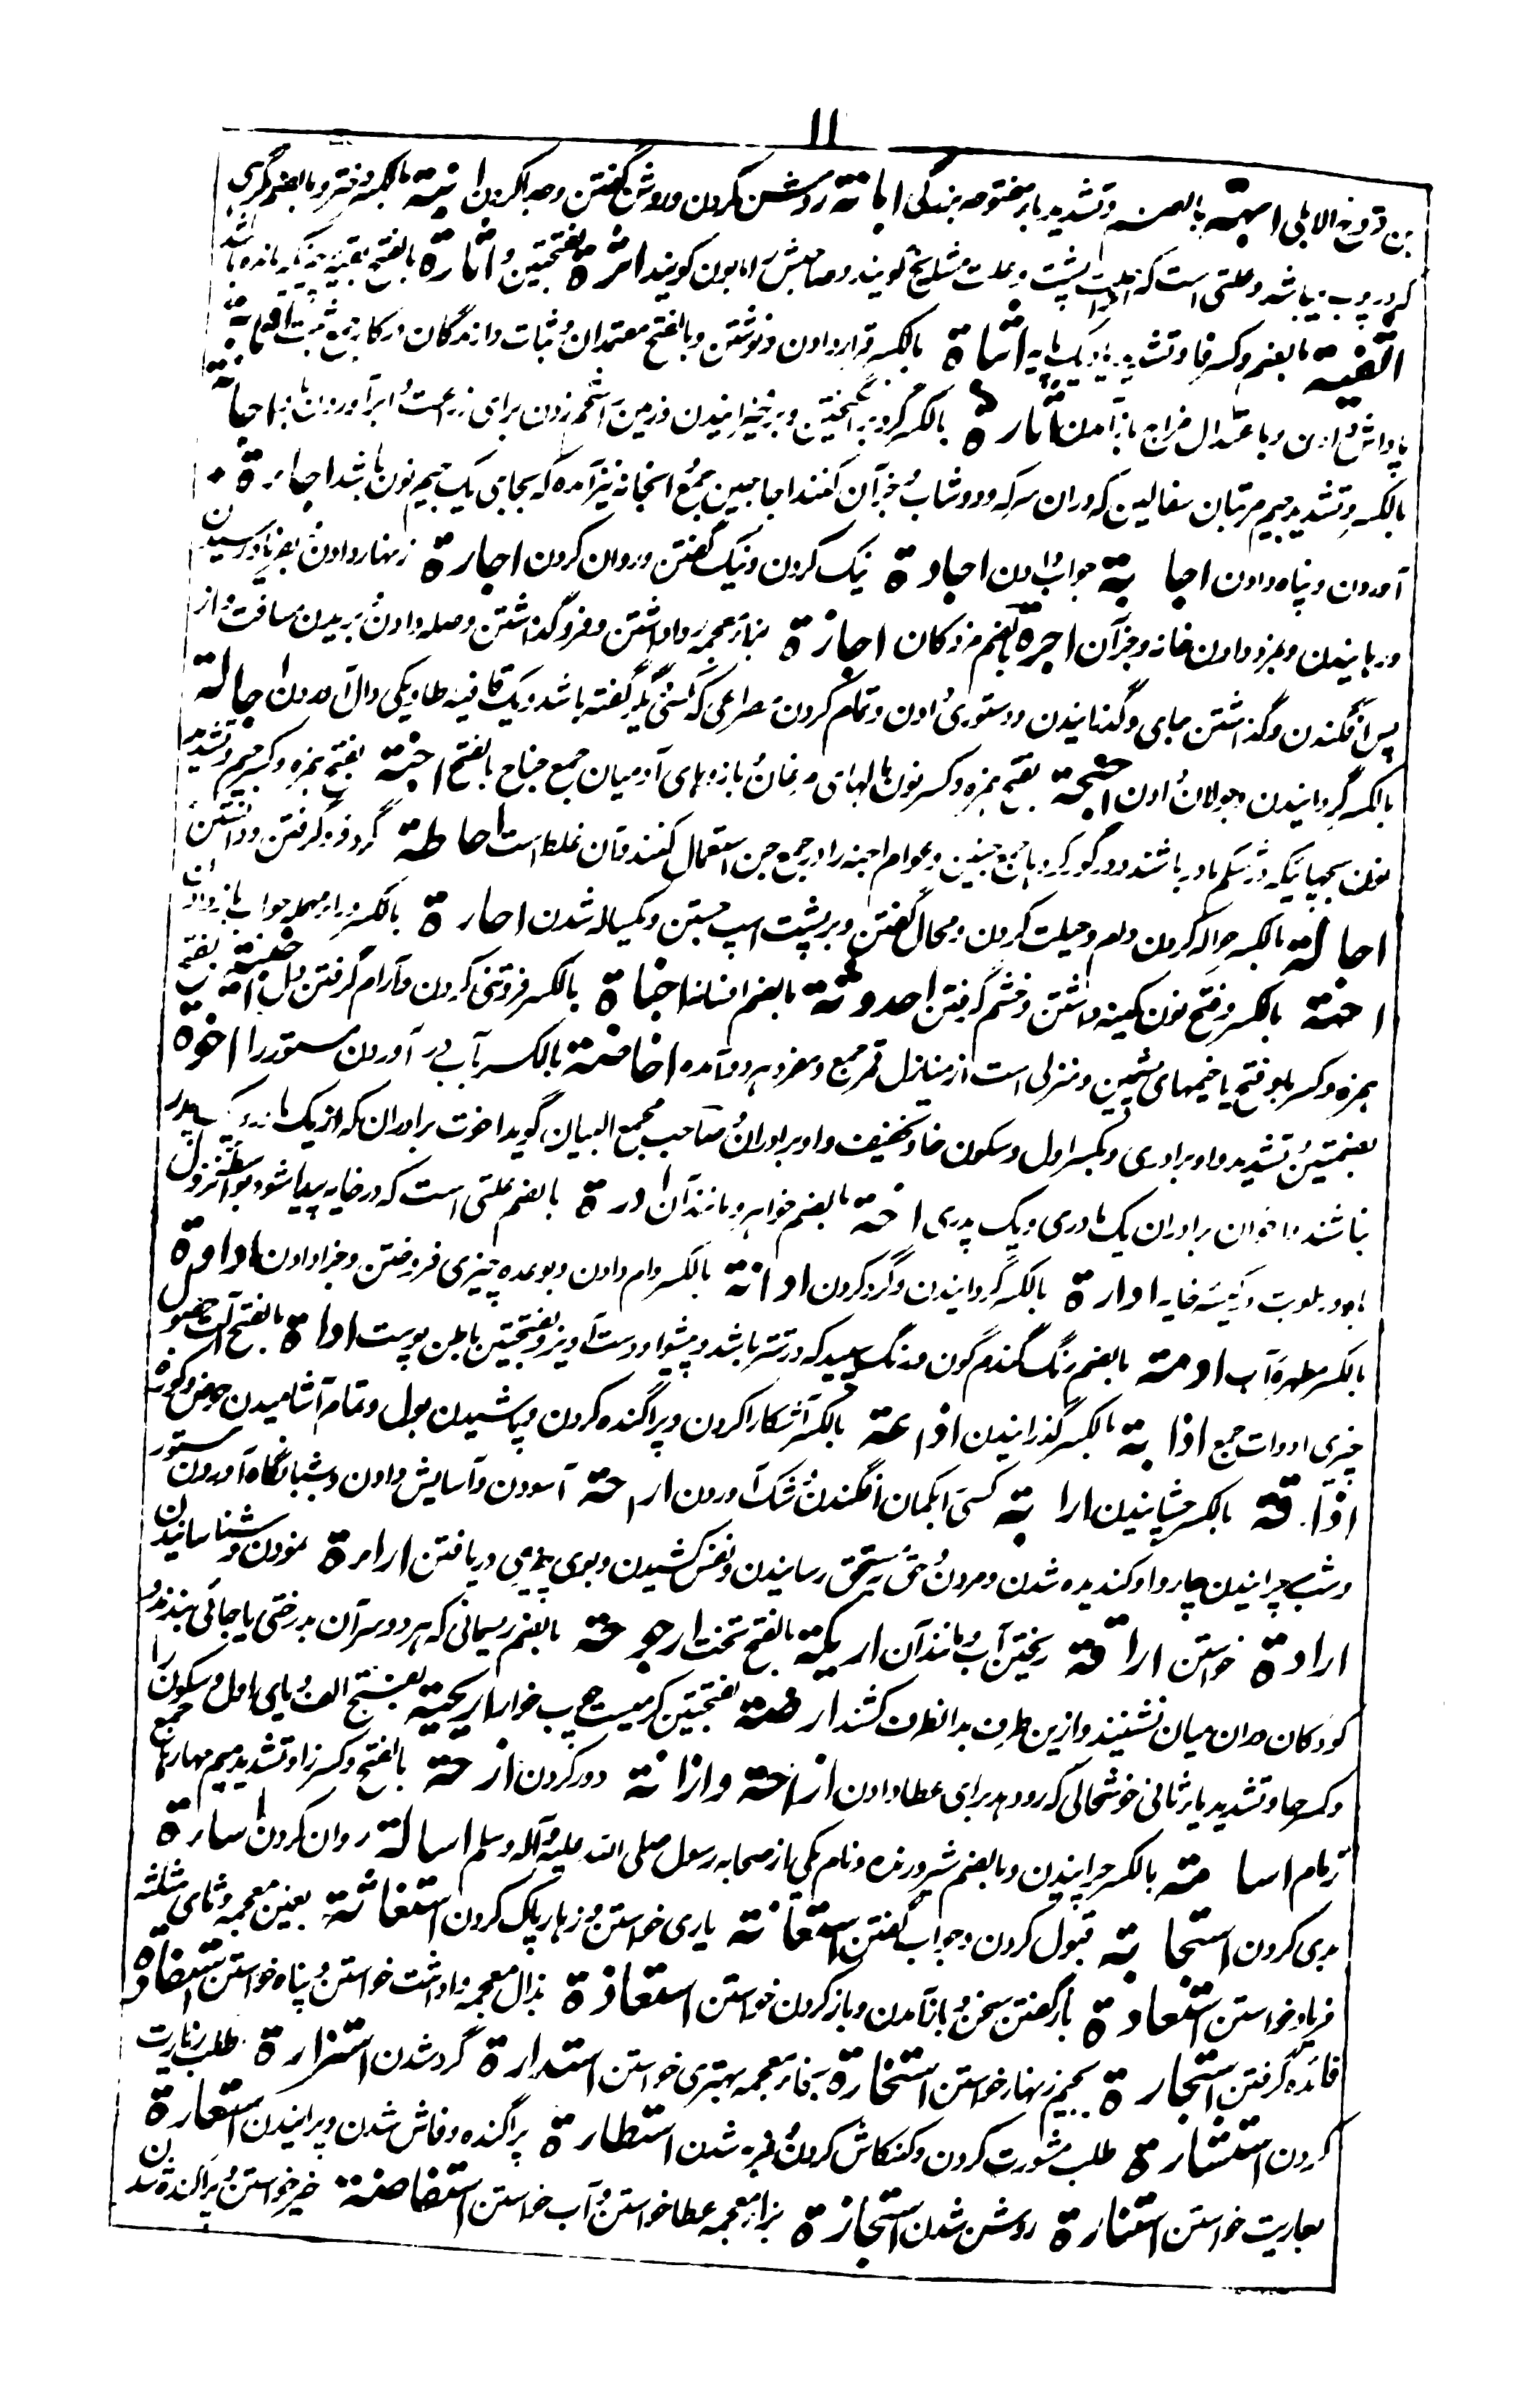 ۱۱
بالضم وتشدید بار مفتوحه بزرگی ابانة روشن کردن وروش گفتن وجدا کردن
علتی است که گویند وصاحبش را مابون گویند اثرة بفتحتین و اثارة بالفتح بقیه چیزیکه مانده باشد
اثفیة بالضم وکسر فا وتشدید یا دیک پایه اثباة بالکسر قرار دادن ونوشتن وبالفتح معتمدان
پاداش دادن وباعتدال مزاج باز آمدن اثارة بالکسر گرد برانگیختن وبرخیزانیدن وزمین را شخم زدن برای زراعت
بالکسر وتشدید جیم مرتبان سفالین که دران سرکه ودوشاب وجز آن کنند اجاجین جمع انجانه نیز آمده که بجای یک جیم نون باشد
آمدن وپناه دادن اجابة جواب دادن اجادة نیک کردن ونیک گفتن وروان کردن اجارة زنهار دادن وبفریاد رسیدن
ورهانیدن وبمزد دادن خانه وجز آن اجرة بالضم مزدکان اجازة بزار معجمه روا داشتن وفرو گذاشتن وصله دادن وبریدن مسافت واز
پس افکندن وگذاشتن جای وگذرانیدن ودستوری دادن وتمام کردن مصراعی که کسی دیگر گفته باشد ویک قافیه طا ویکی دال آوردن اجالة
بالکسر گردانیدن وجولان دادن اجنحة بفتح همزه وکسر نون بالهای مرغان وبازوهای آدمیان جمع جناح بالفتح اجنة بفتح همزه وکسر جیم وتشدید
نون بچهائیکه در شکم مادر باشند ودر گور کرده جمع جنین وعوام اجنه را در جمع جن استعمال کنند وآن غلط است احاطة گرد فرو گرفتن ودانستن
احالة بالکسر حواله کردن وام وحیلت کردن ومحال گفتن وبر پشت اسپ جستن ویکساله شدن احارة بالکسر وراء مهمله جواب باز دادن
احنة بالکسر وفتح نون کینه داشتن وخشم گرفتن احدوثة بالضم افسانه اخباة بالکسر فروتنی کردن وآرام گرفتن دل اخبیة بفتح
همزه وکسر با وفتح یا خیمهای پشمین ومنزلی است از منازل قمر جمع ومفرد هردو آمده اخاضة بالکسر آب در آوردن ستور را اخوة
بضمتین وتشدید واو برادری وبکسر اول وسکون خا وتخفیف واو برادران وصاحب مجمع البیان گوید اخوت برادران که از یک پدر
نباشند واخوان برادران یک مادری ویک پدری اخت بالضم خواهر ومانند آن ادرة بالضم علتی است که در خایه پیدا شود
وکیسه خایه ادارة بالکسر گردانیدن وگرد کردن ادانة بالکسر وام دادن وبوعده چیزی فروختن وجزا دادن اداوة
بالکسر مطهره آب ادمة بالضم رنگ گندم گون ورنگ سپید که در شتر باشد وپیشوا ودست آویز وبفتحتین باطن پوست اداة بالفتح آلت
چیزی ادوات جمع اذابة بالکسر گذرانیدن اذاعة بالکسر آشکارا کردن وپراگنده کردن وپاشیدن بول وتمام آشامیدن حوض
اذاقة بالکسر چشانیدن ارابة کسی را بگمان افگندن وشک آوردن اراحة آسودن وآسایش دادن وشبانگاه آوردن ستور
وشب چرانیدن چاروا وگندیده شدن ومردن وحق بمستحق رسانیدن ونفس کشیدن وبوی چیزی دریافتن اراءة نمودن وشناسانیدن
ارادة خواستن اراقة ریختن آب ومانند آن اریکة بالفتح تخت ارجوحة بالضم ریسمانی که هر دو سر آن بدرختی یا جائی بندند و
کودکان دران میان نشینند وازین طرف بدانطرف کشند ارضة بفتحتین کرمیست چوب خوار اریحیة بفتح الف ویای اول وسکون را
وکسر حا وتشدید یار ثانی خوشحالی که رو دهد برای عطا دادن ازاحة وازانة دور کردن ازمة بالفتح وکسر زا وتشدید میم مهارها جمع
زمام اسامة بالکسر چرانیدن وبالضم شیر درنده ونام یکی از صحابه رسول صلی الله علیه وآله وسلم اسالة روان کردن اسارة
بدی کردن استجابة قبول کردن وجواب گفتن استعانة یاری خواستن وزهار پاک کردن استغاثة بغین معجمه وثای مثلثه
فریاد خواستن استعادة باز گفتن سخن وباز آمدن وباز کردن خواستن استعاذة بذال معجمه واداشت خواستن وپناه خواستن استفادة
فائده گرفتن استجارة بجیم زنهار خواستن استخارة بخاء معجمه بهتری خواستن استدارة گرد شدن استزارة طلب زیارت
کردن استشارة طلب مشورت کردن وکنکاش کردن وفربه شدن استطارة پراگنده وفاش شدن وپرانیدن استعارة
بعاریت خواستن استنارة روشن شدن استجازة بزاء معجمه عطا خواستن وآب خواستن استفاضة خیر خواستن وپراگنده شدن